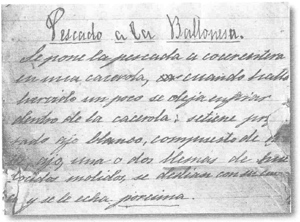 Pescado a la Ballonesa.
Se pone la pescada a cocer entera
en una cacerola, cuando halla
hervido un poco se deja enfriar
dentro de la cacerola; se tiene pre
ado ajo blanco, compuesto de
ajo, una o dos llemas de
cocidos molidos, se deslien con
y se le echa por cima.